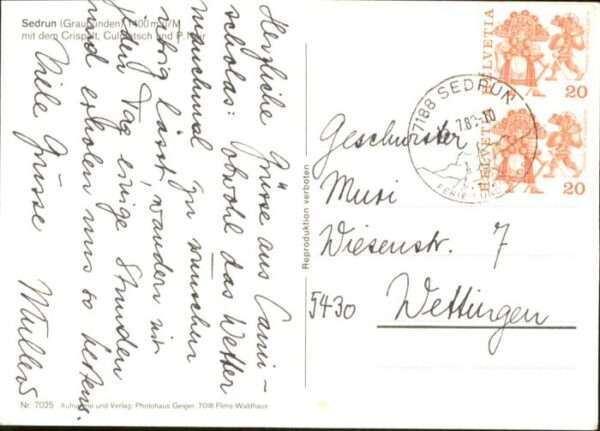 Sedrun (Graubünden) 1400 m ü/M
mit dem Crispalt, Culmatsch und P. Ner
Herzliche Grüsse aus Cami-
scholas: obwohl das Wetter
manchmal zu wünschen
übrig lässt, wandern wir
jeden Tag einige Stunden
und erholen uns so bestens.
Viele Grüsse
Müller
Nr. 7025 Aufnahme und Verlag: Photohaus Geiger, 7018 Flims-Waldhaus
Reproduktion verboten
HELVETIA
20
HELVETIA
20
7188 SEDRUN
Geschwister
Musi
Wiesenstr. 7
5430 Wettingen